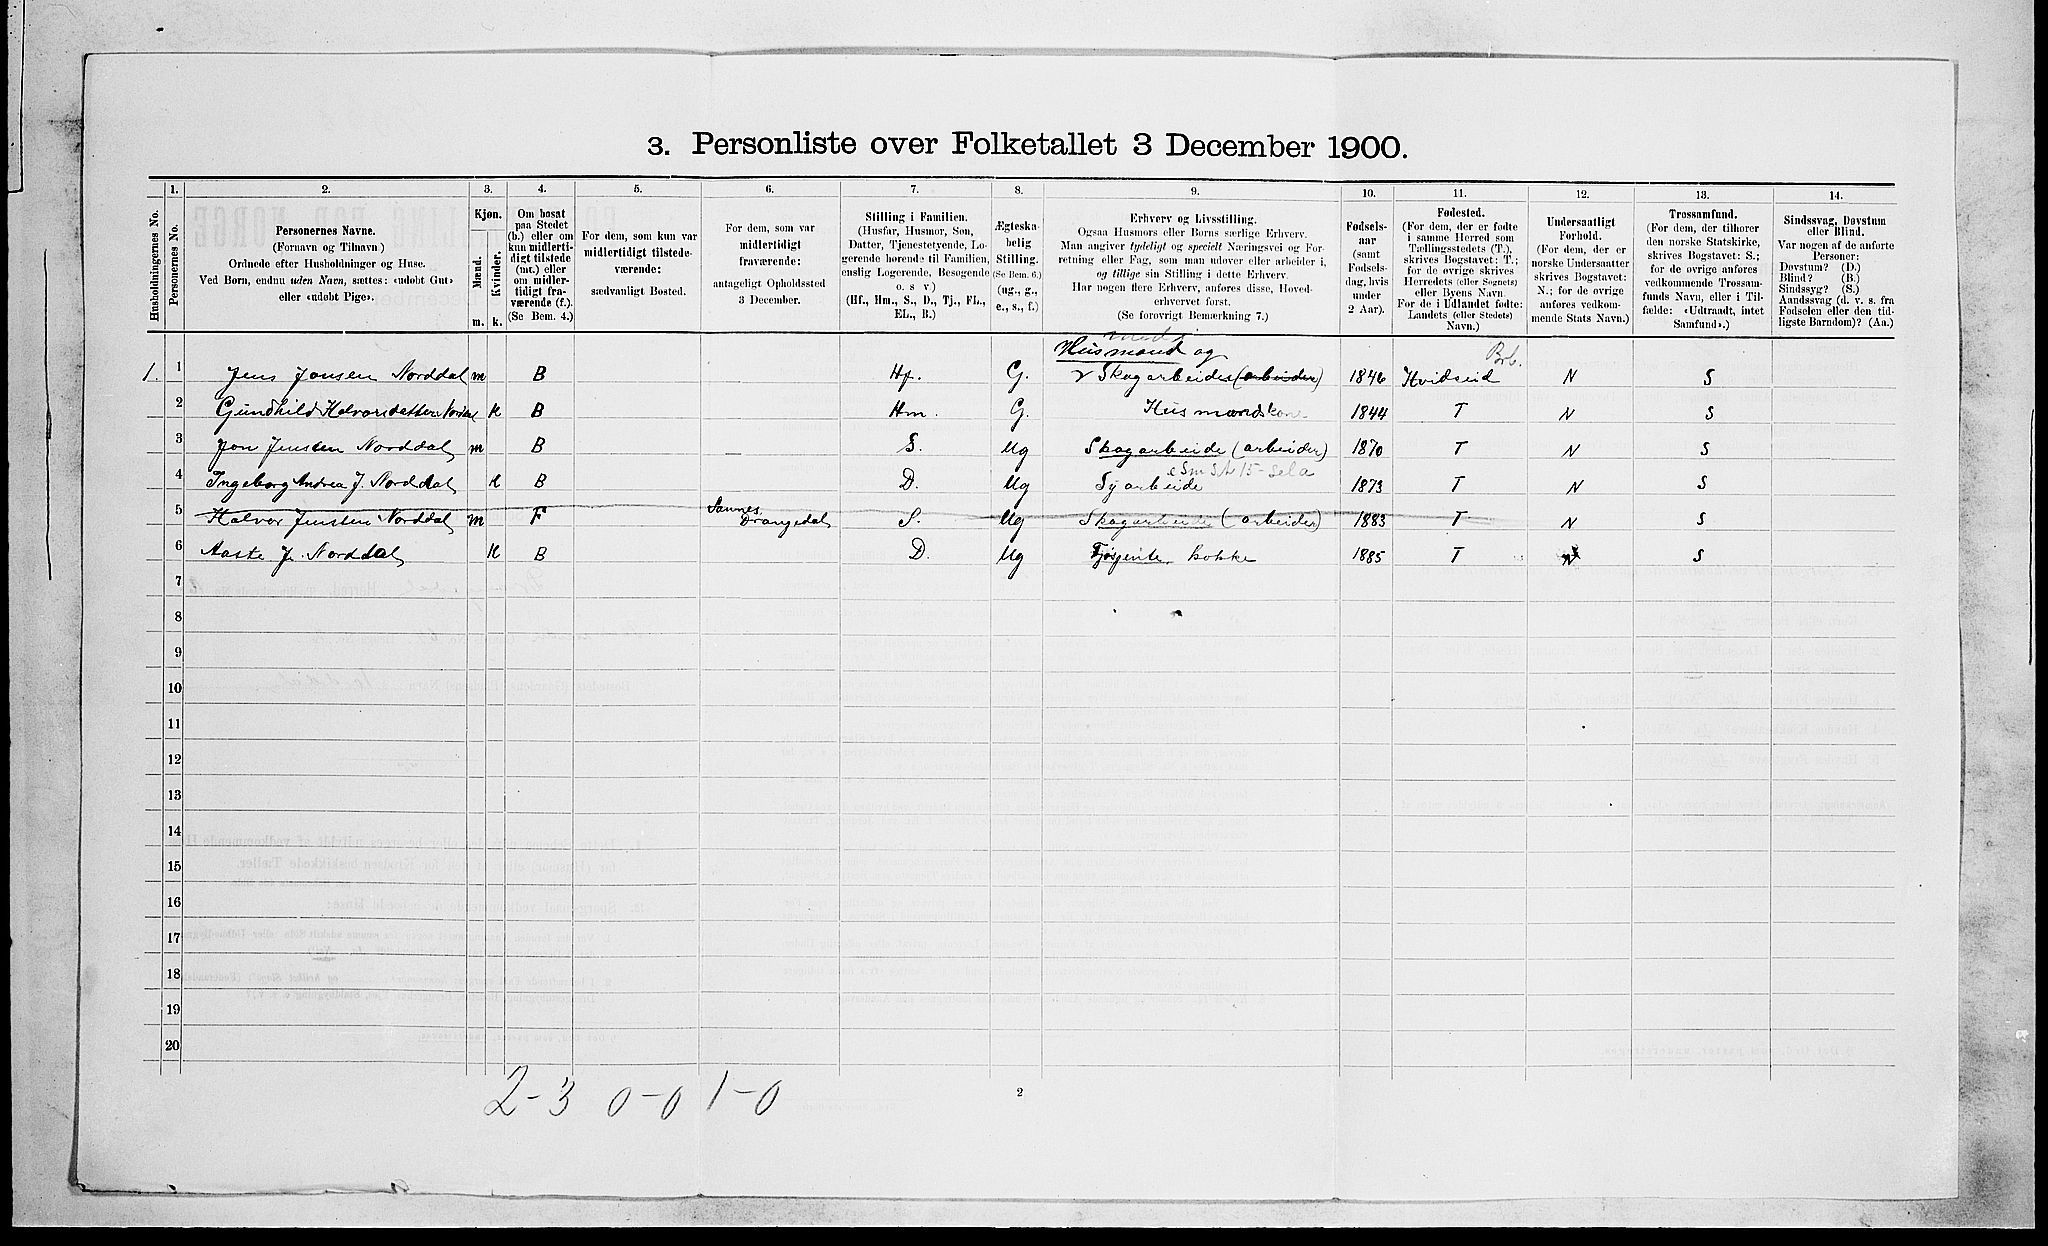 3. Personliste over Folketallet 3 December 1900.
1. 2. 3. 4. 5. 6. 7. 8. 9. 10. 11. 12. 13. 14.
Husholdningernes No.
Personernes No.
Personernes Navne.
(Fornavn og Tilnavn.)
Ordnede efter Husholdninger og Huse.
Ved Børn, endnu uden Navn, sættes: «udøbt Gut»
eller «udøbt Pige».
Kjøn.
Mænd.
Kvinder.
m. k.
Om bosat
paa Stedet
(b.) eller om
kun midlerti-
digt tilstede
(mt.) eller
om midler-
tidigt fra-
værende (f.).
(Se Bem. 4.)
For dem, som kun var
midlertidigt tilstede-
værende:
sædvanligt Bosted.
For dem, som var
midlertidigt
fraværende:
antageligt Opholdssted
3 December.
Stilling i Familien.
(Husfar, Husmor, Søn,
Datter, Tjenestetyende, Lo-
gerende hørende til Familien,
enslig Logerende, Besøgende
o. s. v.)
(Hf., Hm., S., D., Tj., FL.,
EL., B.)
Ægteska-
belig
Stilling.
(Se Bem. 6.)
(ug., g.,
e., s., f.)
Erhverv og Livsstilling.
Ogsaa Husmors eller Børns særlige Erhverv.
Man angiver tydeligt og specielt Næringsvei og For-
retning eller Fag, som man udøver eller arbeider i,
og tillige sin Stilling i dette Erhverv.
Har nogen flere Erhverv, anføres disse, Hoved-
erhvervet først.
(Se forøvrigt Bemærkning 7.)
Fødsels-
aar
(samt
Fødsels-
dag, hvis
under
2 Aar).
Fødested.
(For dem, der er fødte
i samme Herred som
Tællingsstedets (T.),
skrives Bogstavet: T.;
for de øvrige skrives
Herredets (eller Sognets)
eller Byens Navn.
For de i Udlandet fødte:
Landets (eller Stedets)
Navn.)
Undersaatligt
Forhold.
(For dem, der er
norske Undersaatter
skrives Bogstavet:
N.; for de øvrige
anføres vedkom-
mende Stats Navn.)
Trossamfund.
(For dem, der tilhører
den norske Statskirke,
skrives Bogstavet: S.;
for de øvrige anføres
vedkommende Trossam-
funds Navn, eller i Til-
fælde: «Udtraadt, intet
Samfund».)
Sindssvag, Døvstum
eller Blind.
Var nogen af de anførte
Personer:
Døvstum? (D.)
Blind? (B.)
Sindssyg? (S.)
Aandssvag (d. v. s. fra
Fødselen eller den tid-
ligste Barndom)? (Aa.)
Husmand og Brb.
1. 1 Jens Jonsen Norddal m B Hf. G. Skogarbeide (arbeider) 1846 Hvidseid N S
2 Gundhild Halvorsdatter k B Hm. G. Husmandskone 1844 T N S
3 Jon Jensen Norddal m B S. Ug Skogarbeide (arbeider) 1870 T N S
4 Ingeborg Andrea J. Norddal k B D. Ug Syarbeide 1873 T N S
5 Halvor Jensen Norddal m F Sannes Drangedal S. Ug Skogarbeide (arbeider) 1883 T N S
6 Aaste J. Norddal k B D. Ug kokke 1885 T N S
7
8
9
10
11
12
13
14
15
16
17
18
19
20
2-3 0-0 1-0
2